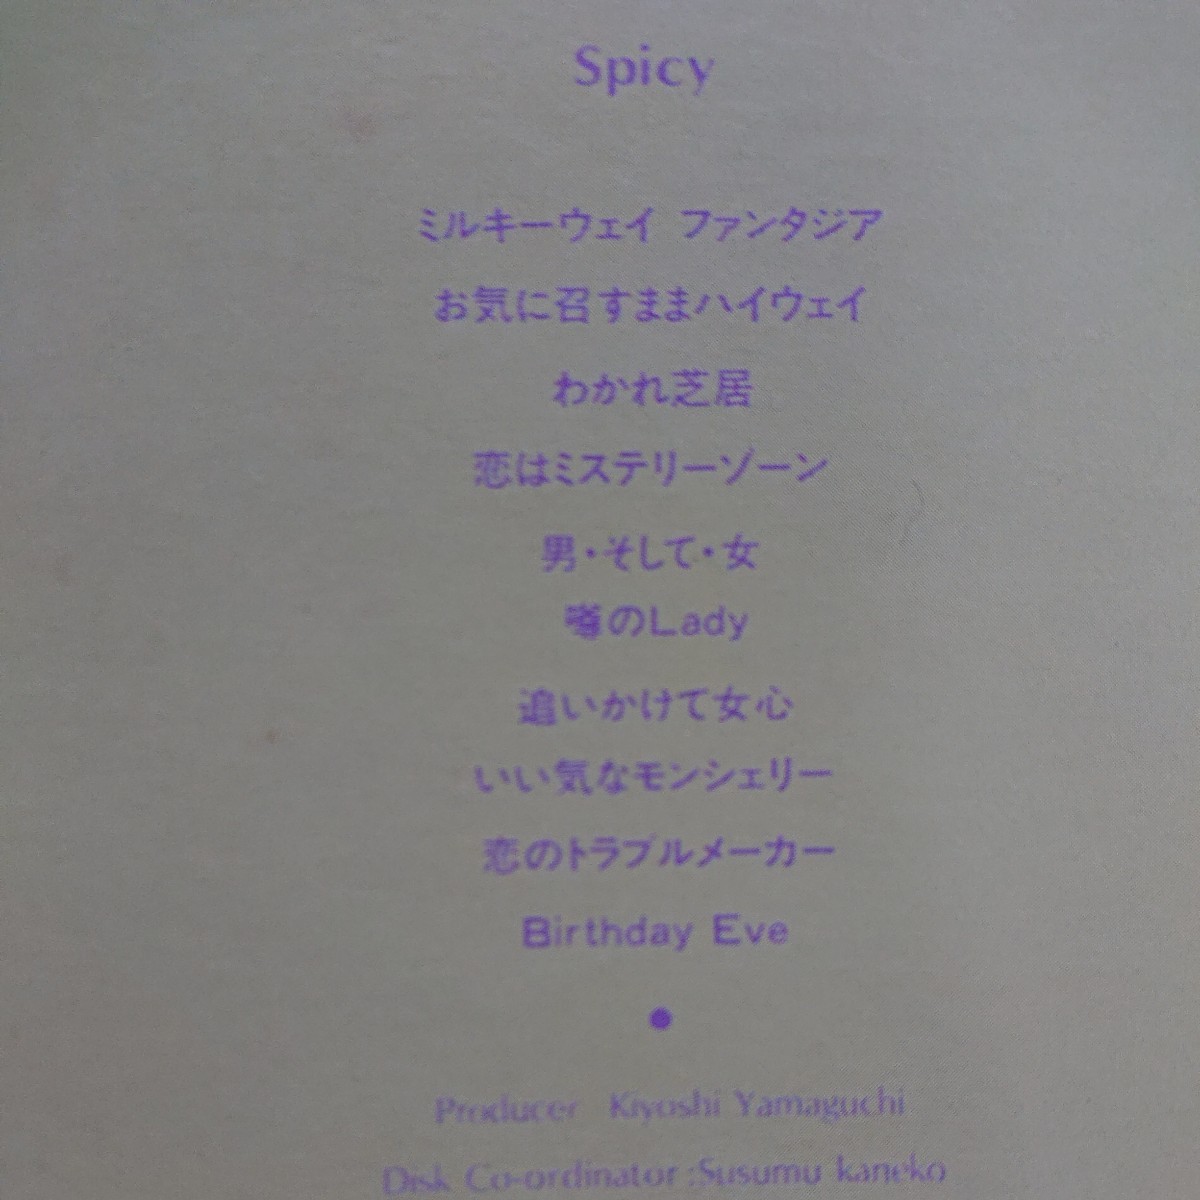 Spicy
ミルキーウェイ ファンタジア
お気に召すままハイウェイ
わかれ芝居
恋はミステリーゾーン
男・そして・女
噂のLady
追いかけて女心
いい気なモンシェリー
恋のトラブルメーカー
Birthday Eve
Producer Kiyoshi Yamaguchi
Disk Co-ordinator :Susumu kaneko